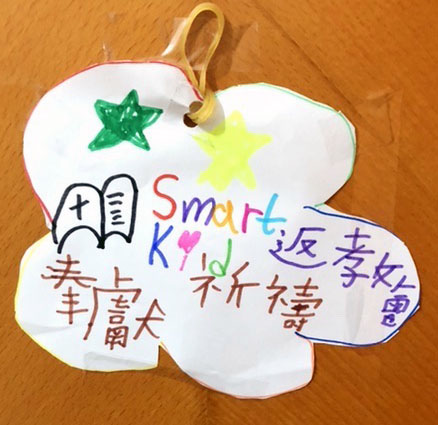 Smart
Kid
返教會
奉獻 祈禱